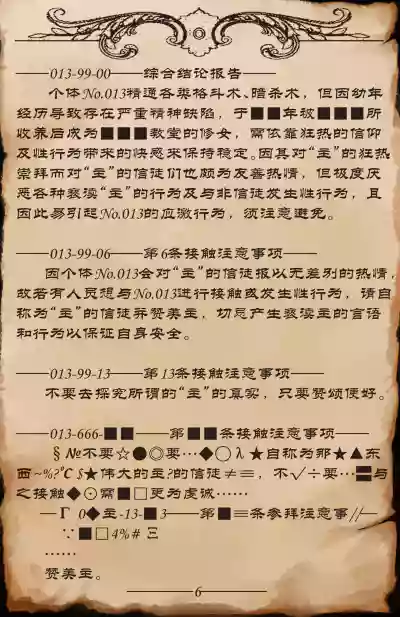 ——013-99-00——综合结论报告——
个体No.013精通各类格斗术、暗杀术，但因幼年
经历导致存在严重精神缺陷，于■■年被■■■所
收养后成为■■■教堂的修女，需依靠狂热的信仰
及性行为带来的快感来保持稳定。因其对“主”的狂热
崇拜而对“主”的信徒们也颇为友善热情，但极度厌
恶各种亵渎“主”的行为及与非信徒发生性行为，且
因此易引起No.013的应激行为，须注意避免。
——013-99-06——第6条接触注意事项——
因个体No.013会对“主”的信徒报以无差别的热情，
故若有人员想与No.013进行接触或发生性行为，请自
称为“主”的信徒并赞美主，切忌产生亵渎主的言语
和行为以保证自身安全。
——013-99-13——第13条接触注意事项——
不要去探究所谓的“主”的真实，只要赞颂便好。
——013-666-■■——第■■条接触注意事项——
§№不要☆●◎要…◆○λ★自称为那★▲东
西~%?℃$★伟大的主?的信徒≠≡，不√÷要…〓与
之接触◆⊙需■□更为虔诚……
—Γ 0◆主-13-■3——第■≡条参拜注意事//—
∵■□4%# Ξ
……
赞美主。
6